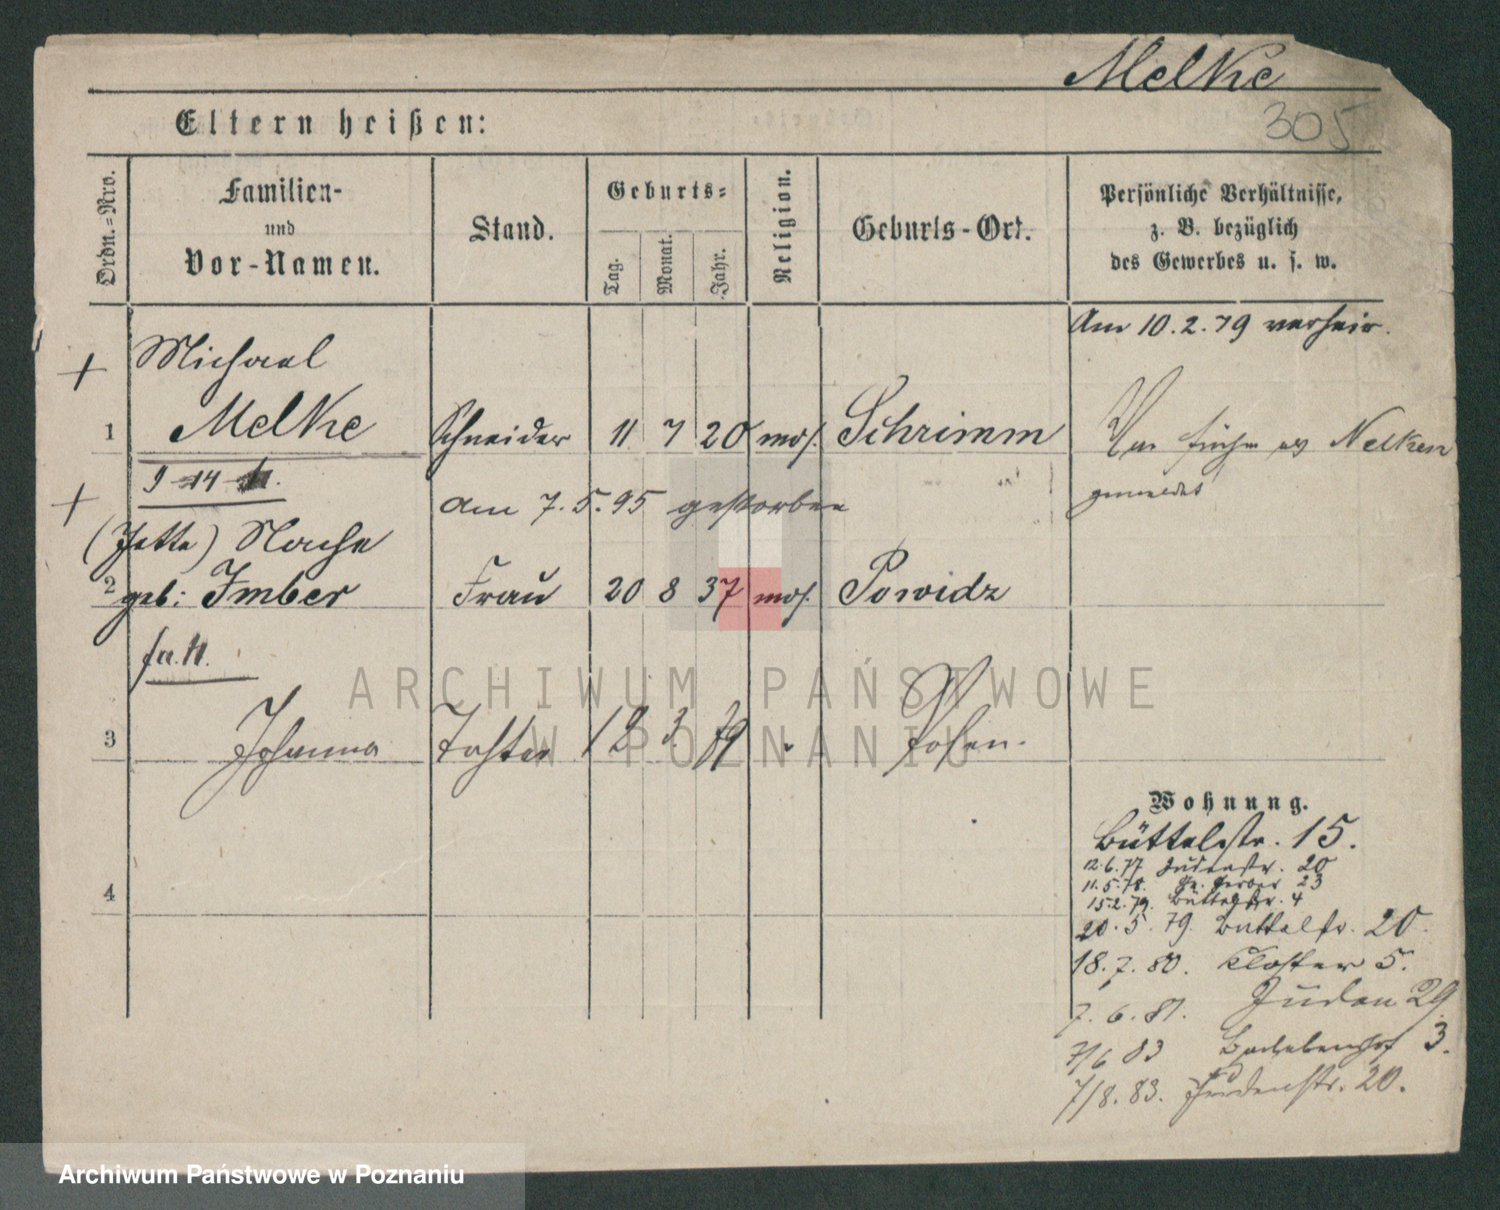 Melke
305
Eltern heißen:
Ordn.-Nro.
Familien-
und
Vor-Namen.
Stand.
Geburts-
Tag.
Monat.
Jahr.
Religion.
Geburts-Ort.
Persönliche Verhältnisse,
z. B. bezüglich
des Gewerbes u. s. w.
Am 10.2.79 verheir.
Michael
1 Melke Schneider 11 7 20 mos. Schrimm
Nelken
gemeldet
am 7.5.95 gestorben
(Jette) Nache
2 geb: Imber Frau 20 8 37 mos. Powidz
3 Johanna Tochter 12 3. 79 " Posen.
4
Wohnung.
Büttelstr. 15.
12.6.77 Judenstr. 20
11.5.78. Gr. Gerber 23
15.2.79. Büttelstr. 4
20.5.79. Büttelstr. 20.
18.7.80. Kloster 5.
7.6.81. Juden 29
7/6 83 3.
7/8.83. Judenstr. 20.
ARCHIWUM PAŃSTWOWE
W POZNANIU
Archiwum Państwowe w Poznaniu